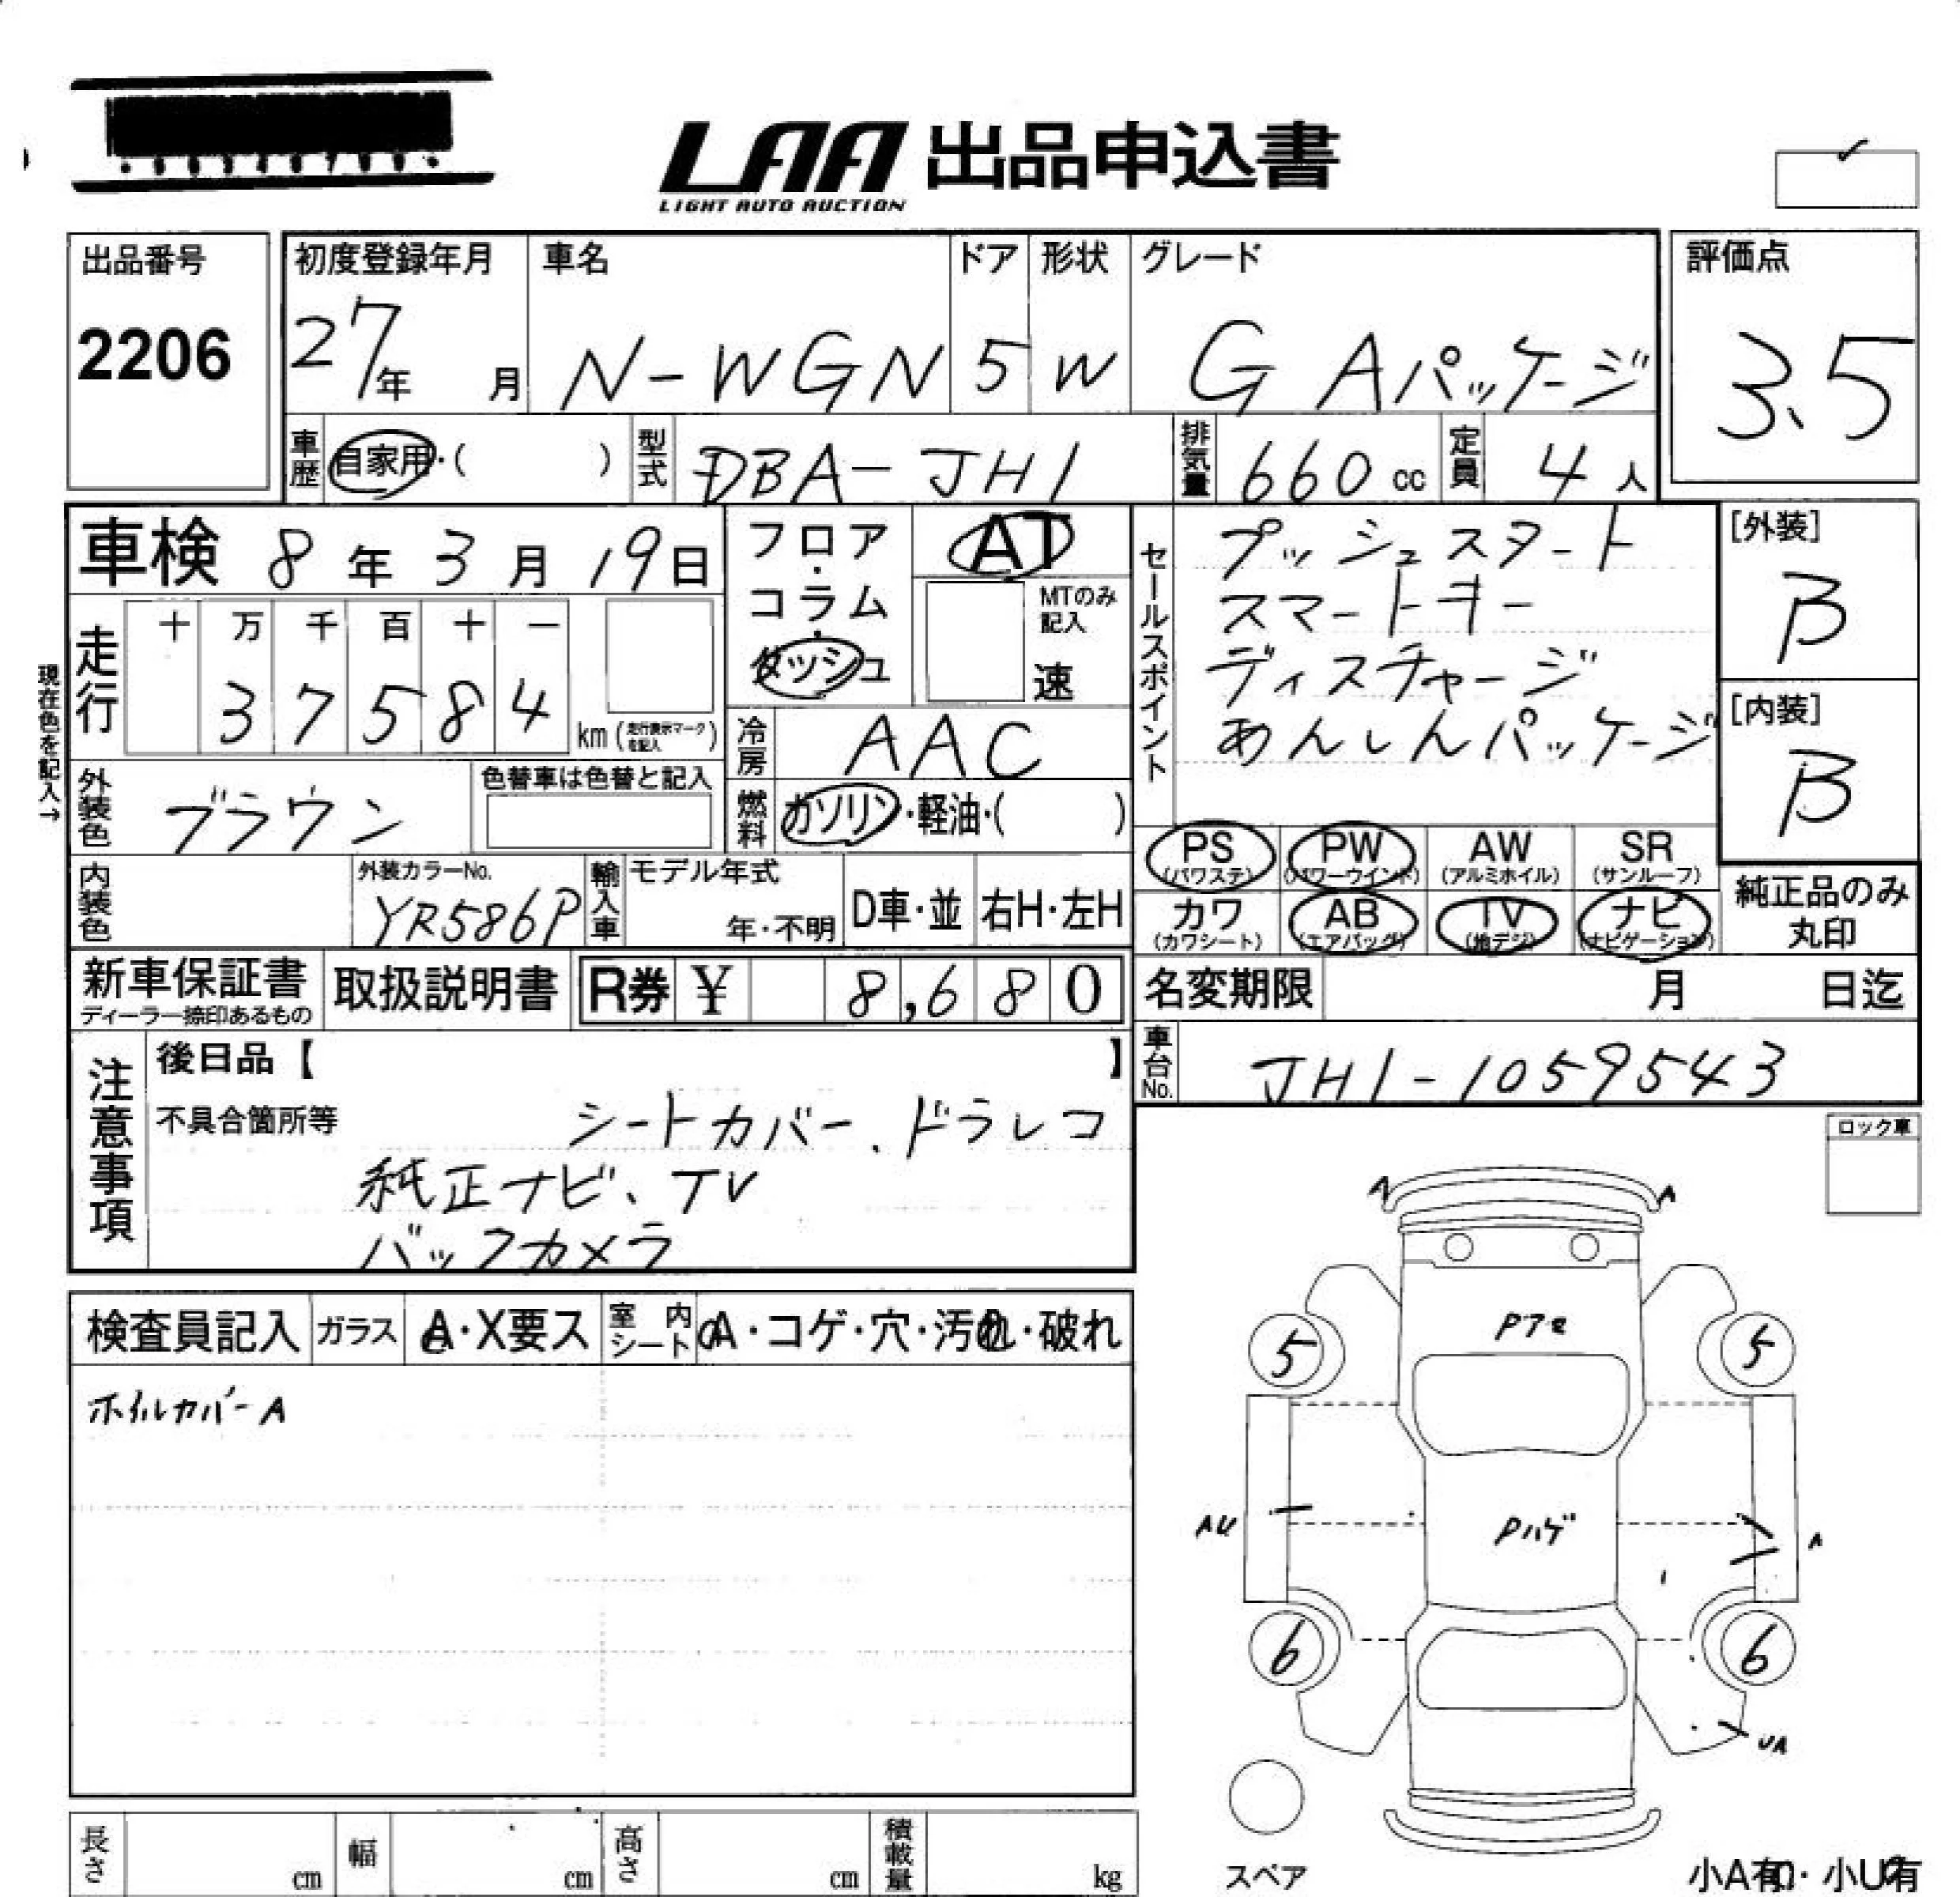 LAA 出品申込書
LIGHT AUTO AUCTION
出品番号
2206
初度登録年月
27年 月
車名
N-WGN
ドア
5
形状
W
グレード
G Aパッケージ
評価点
3.5
車歴 自家用・( )
型式 DBA-JH1
排気量 660 cc
定員 4 人
車検 8年 3月 19日
フロア・コラム・ダッシュ
AT
MTのみ記入
速
現在色を記入→
走行
十 万 千 百 十 一
3 7 5 8 4 km (走行表示マークを記入)
冷房 AAC
燃料 ガソリン・軽油・( )
外装色 ブラウン
色替車は色替と記入
内装色
外装カラーNo.
YR586P
輸入車
モデル年式
年・不明
D車・並
右H・左H
セールスポイント
プッシュスタート
スマートキー
ディスチャージ
あんしんパッケージ
[外装]
B
[内装]
B
PS (パワステ)
PW (パワーウインド)
AW (アルミホイル)
SR (サンルーフ)
カワ (カワシート)
AB (エアバッグ)
TV (地デジ)
ナビ (ナビゲーション)
純正品のみ
丸印
新車保証書
ディーラー捺印あるもの
取扱説明書
R券 ¥ 8,680
名変期限 月 日迄
車台No. JH1-1059543
注意事項
後日品【 】
不具合箇所等
シートカバー、ドラレコ
純正ナビ、TV
バックカメラ
ロック車
検査員記入
ガラス A・X要ス
室内シート A・コゲ・穴・汚れ・破れ
ホイルカバーA
A
A
5
5
Pハゲ
AU
A
6
6
UA
スペア
小A有・小U有
長さ cm
幅 cm
高さ cm
積載量 kg